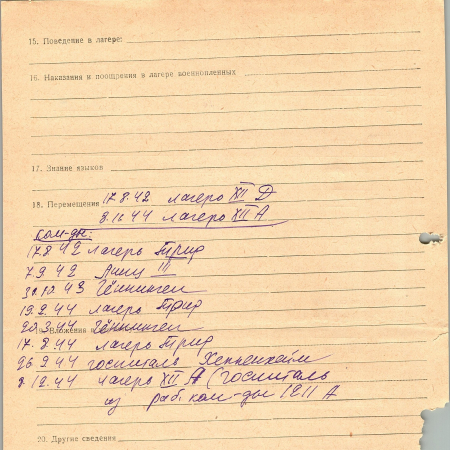 15. Поведение в лагере:
16. Наказания и поощрения в лагере военнопленных
17. Знание языков
18. Перемещения 17.8.42 лагерь XII Д
8.12.44 лагерь XII А
ком-ды:
17.8.42 лагерь Трир
7.9.42 Линц III
44 лагерь Трир
44 Гённинген
17.8.44 лагерь Трир
26.9.44 госпиталь Хеппенхейм
8.12.44 лагерь XII А (госпиталь
из раб ком-ды 1211 А
20. Другие сведения